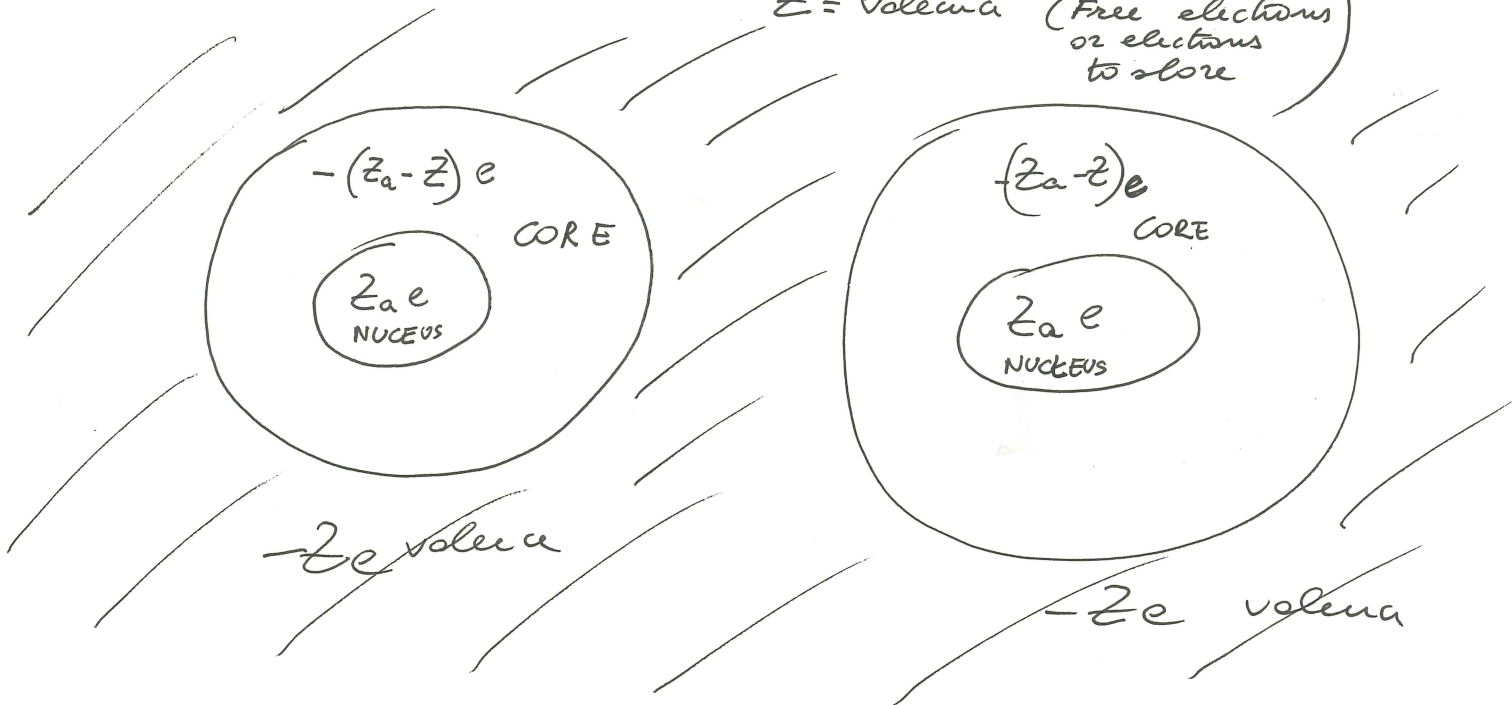 Z = Valence (Free electrons
or electrons
to share
-(Zₐ-Z) e
CORE
Zₐ e
NUCEUS
-Ze valence
-(Zₐ-Z)e
CORE
Zₐ e
NUCKEUS
-Ze valence